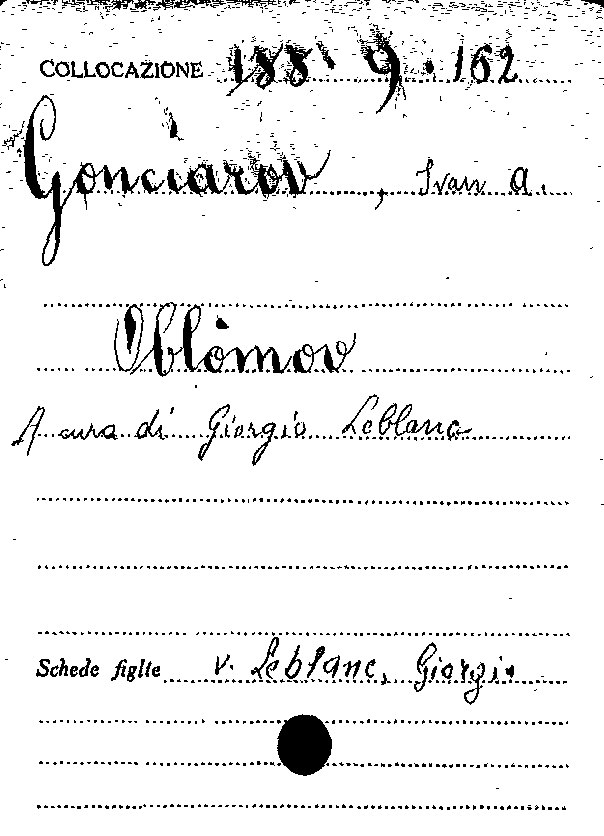 COLLOCAZIONE 188. 9. 162
Gonciarov, Ivan A.
Oblòmov
A cura di Giorgio Leblanc
Schede figlie v. Leblanc, Giorgio